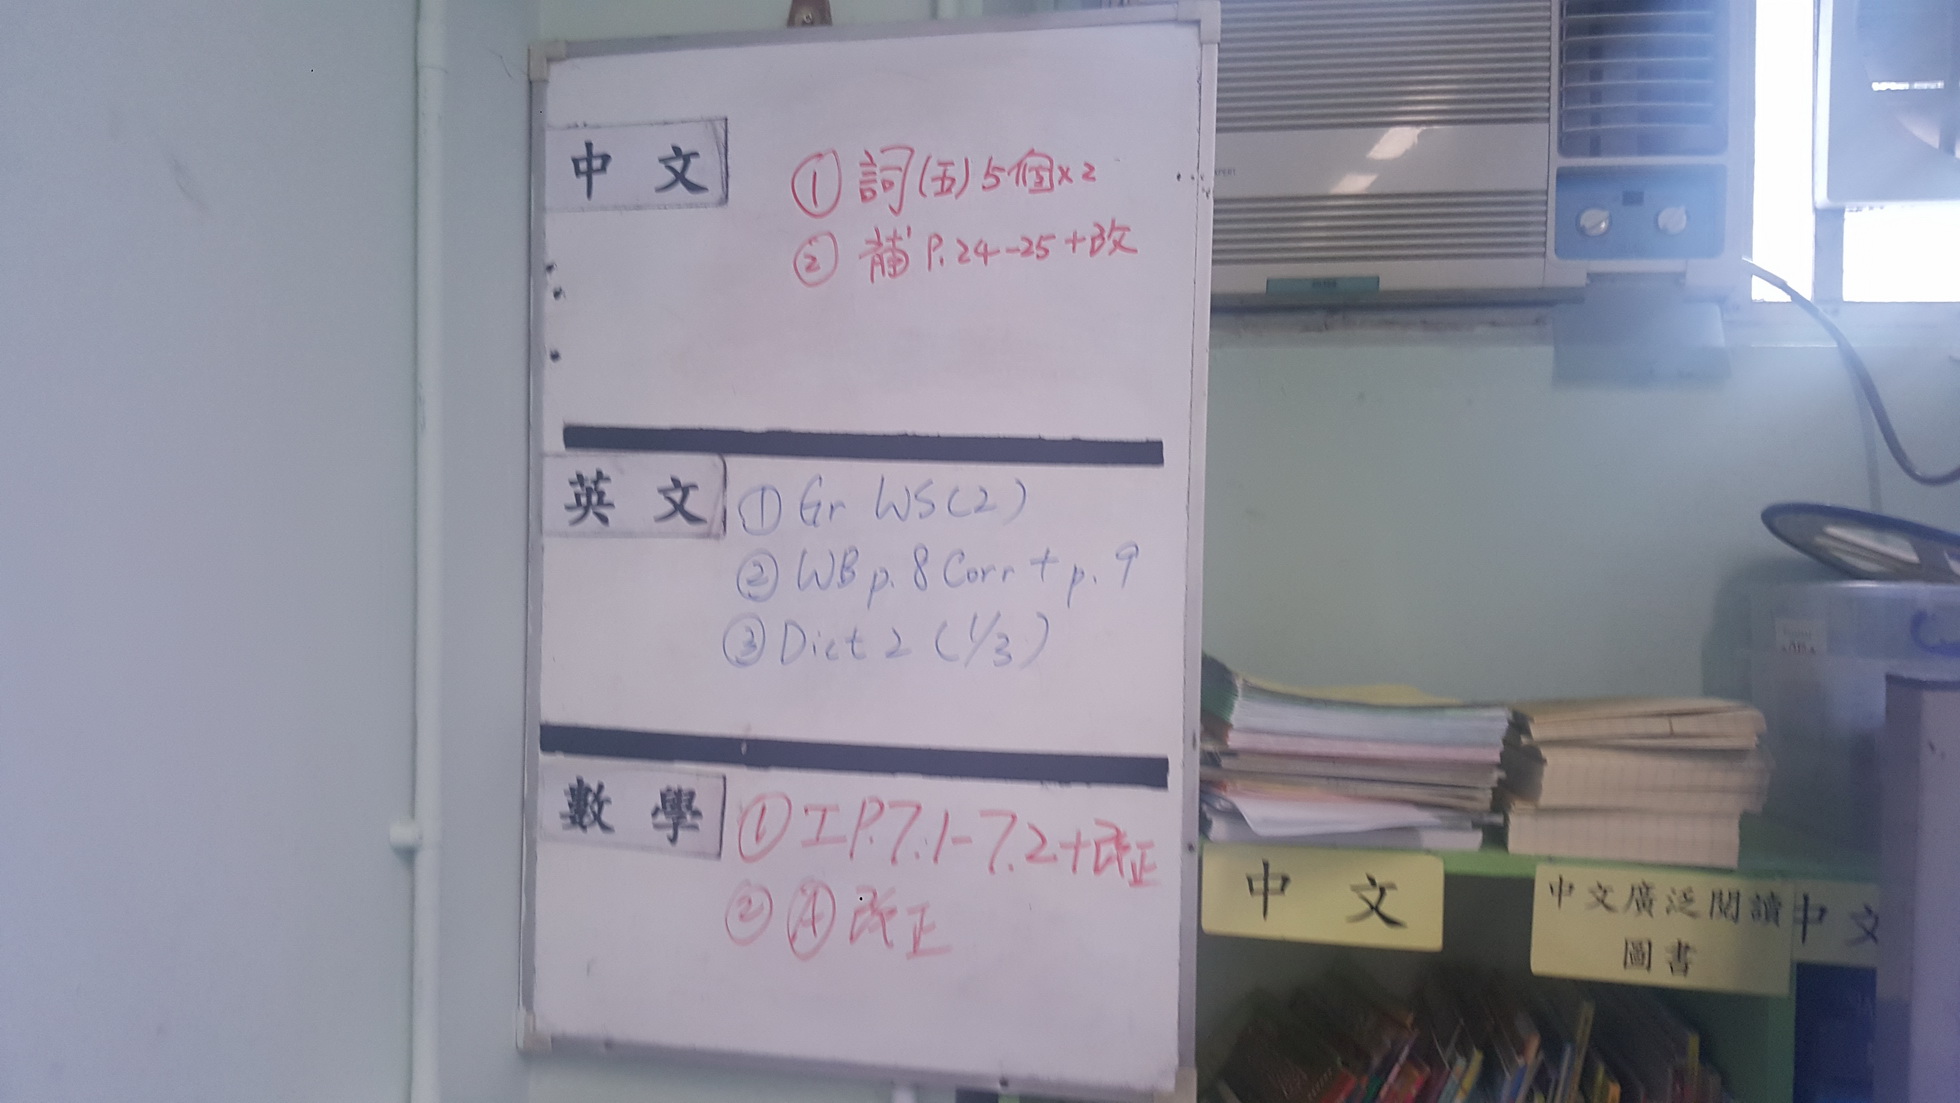 中文
① 詞(五)5個x2
② 補 P.24-25+改
英文
① Gr WS(2)
② WB p.8 Corr + p.9
③ Dict 2 (1/3)
數學
① 工P.7.1-7.2+改正
② Ⓐ 改正
中文
中文廣泛閱讀
圖書
中文